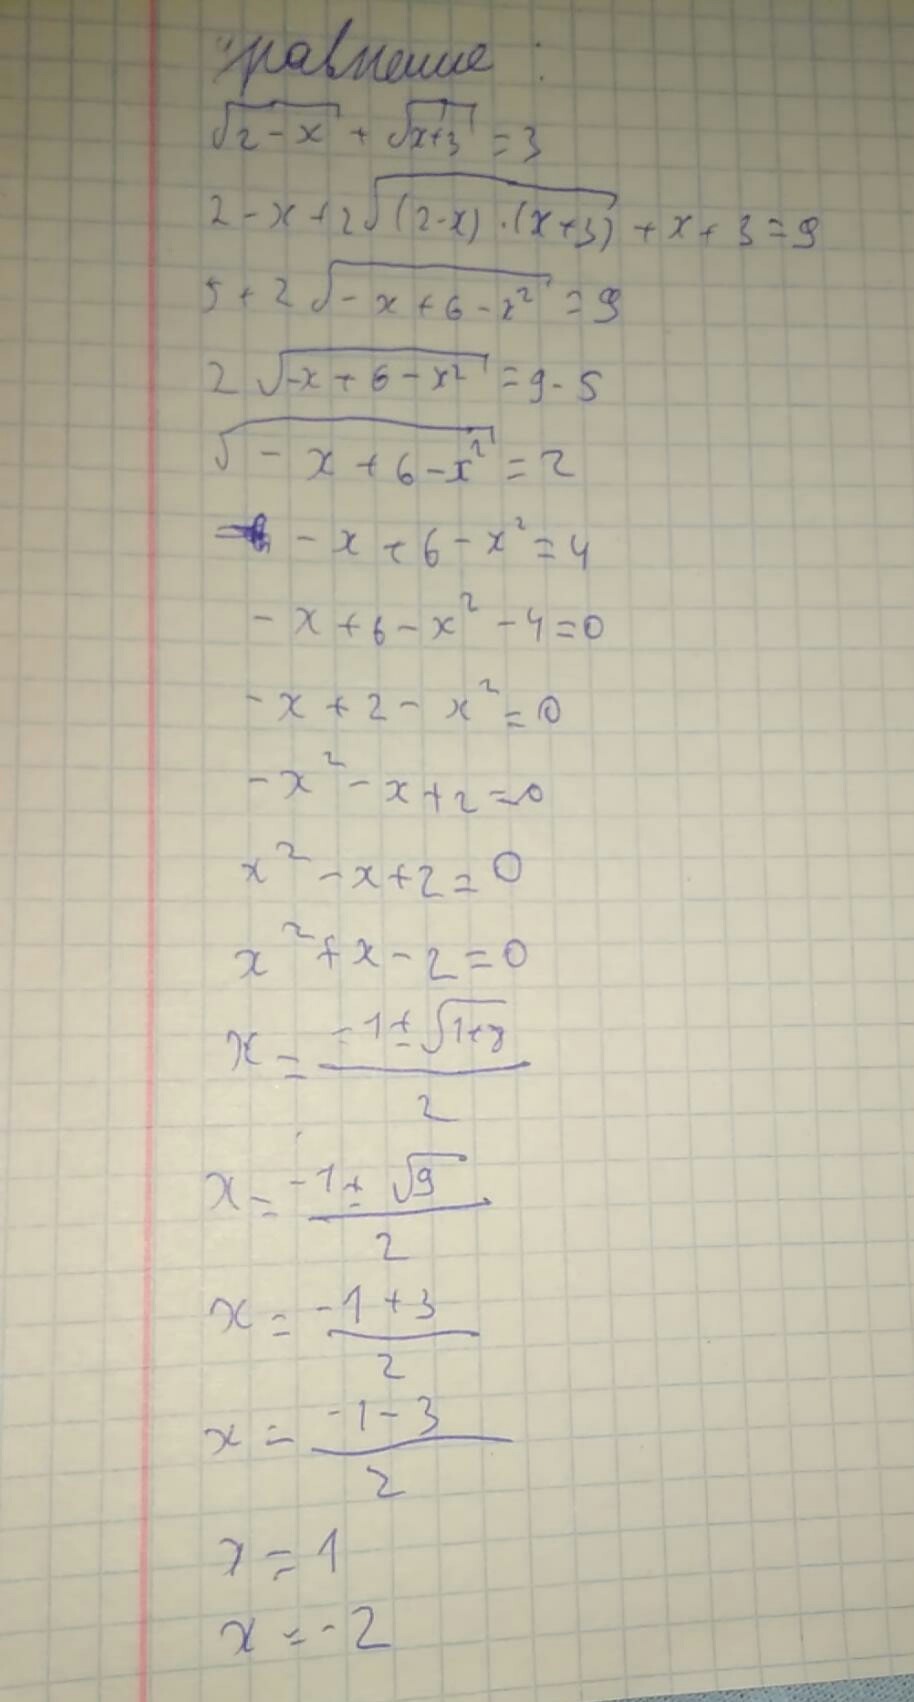 уравнение :
√2-x + √x+3 = 3
2-x+2√(2-x)·(x+3) +x+3=9
5+2√-x+6-x² =9
2√-x+6-x² =9-5
√-x+6-x² =2
-x+6-x²=4
-x+6-x²-4=0
-x+2-x²=0
-x²-x+2=0
x²-x+2=0
x²+x-2=0
x= -1±√1+8 / 2
x= -1±√9 / 2
x= -1+3 / 2
x= -1-3 / 2
x=1
x=-2